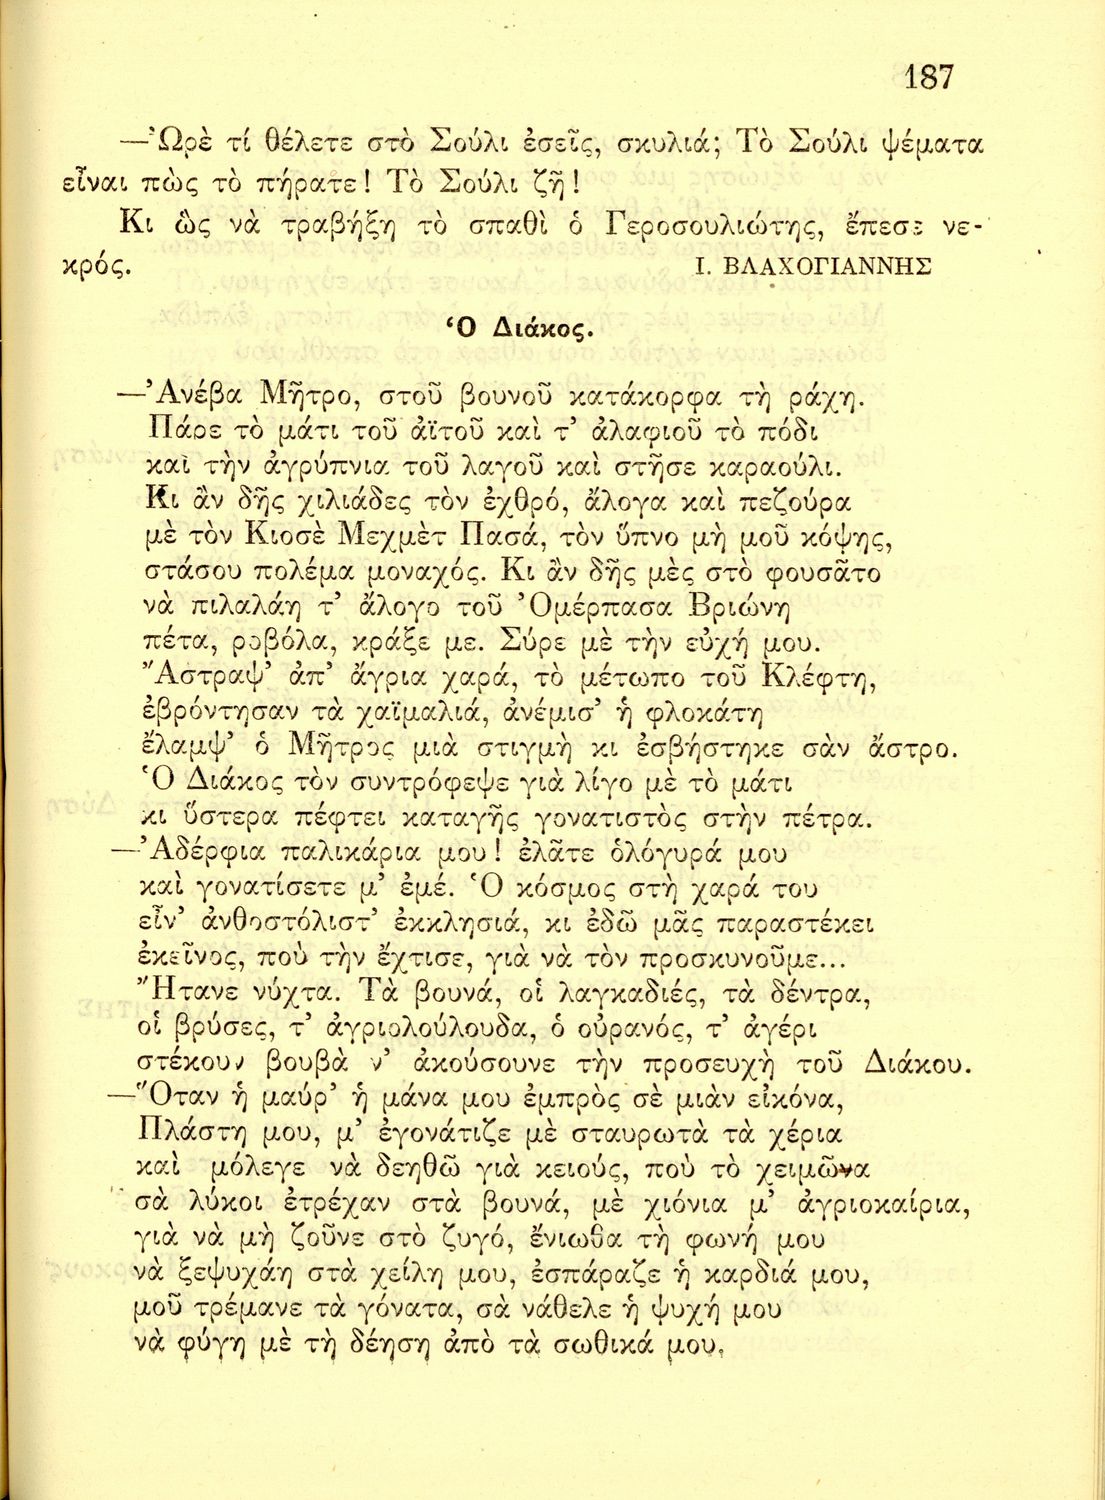 187
—Ὠρὲ τί θέλετε στὸ Σούλι ἐσεῖς, σκυλιά; Τὸ Σούλι ψέματα
εἶναι πὼς τὸ πήρατε! Τὸ Σούλι ζῆ!
Κι ὣς νὰ τραβήξη τὸ σπαθὶ ὁ Γεροσουλιώτης, ἔπεσε νε-
κρός.
Ι. ΒΛΑΧΟΓΙΑΝΝΗΣ
Ὁ Διάκος.
—Ἀνέβα Μῆτρο, στοῦ βουνοῦ κατάκορφα τὴ ράχη.
Πάρε τὸ μάτι τοῦ ἀϊτοῦ καὶ τ' ἀλαφιοῦ τὸ πόδι
καὶ τὴν ἀγρύπνια τοῦ λαγοῦ καὶ στῆσε καραούλι.
Κι ἂν δῆς χιλιάδες τὸν ἐχθρό, ἄλογα καὶ πεζούρα
μὲ τὸν Κιοσὲ Μεχμὲτ Πασά, τὸν ὕπνο μὴ μοῦ κόψης,
στάσου πολέμα μοναχός. Κι ἂν δῆς μὲς στὸ φουσᾶτο
νὰ πιλαλάη τ' ἄλογο τοῦ Ὀμέρπασα Βριώνη
πέτα, ροβόλα, κράξε με. Σύρε μὲ τὴν εὐχή μου.
Ἄστραψ' ἀπ' ἄγρια χαρά, τὸ μέτωπο τοῦ Κλέφτη,
ἐβρόντησαν τὰ χαϊμαλιά, ἀνέμισ' ἡ φλοκάτη
ἔλαμψ' ὁ Μῆτρος μιὰ στιγμὴ κι ἐσβήστηκε σὰν ἄστρο.
Ὁ Διάκος τὸν συντρόφεψε γιὰ λίγο μὲ τὸ μάτι
κι ὕστερα πέφτει καταγῆς γονατιστὸς στὴν πέτρα.
—Ἀδέρφια παλικάρια μου! ἐλᾶτε ὁλόγυρά μου
καὶ γονατίσετε μ' ἐμέ. Ὁ κόσμος στὴ χαρά του
εἶν' ἀνθοστόλιστ' ἐκκλησιά, κι ἐδῶ μᾶς παραστέκει
ἐκεῖνος, ποὺ τὴν ἔχτισε, γιὰ νὰ τὸν προσκυνοῦμε...
Ἤτανε νύχτα. Τὰ βουνά, οἱ λαγκαδιές, τὰ δέντρα,
οἱ βρύσες, τ' ἀγριολούλουδα, ὁ οὐρανός, τ' ἀγέρι
στέκουν βουβὰ ν' ἀκούσουνε τὴν προσευχὴ τοῦ Διάκου.
—Ὅταν ἡ μαύρ' ἡ μάνα μου ἐμπρὸς σὲ μιὰν εἰκόνα,
Πλάστη μου, μ' ἐγονάτιζε μὲ σταυρωτὰ τὰ χέρια
καὶ μόλεγε νὰ δεηθῶ γιὰ κειούς, ποὺ τὸ χειμῶνα
σὰ λύκοι ἐτρέχαν στὰ βουνά, μὲ χιόνια μ' ἀγριοκαίρια,
γιὰ νὰ μὴ ζοῦνε στὸ ζυγό, ἔνιωθα τὴ φωνή μου
νὰ ξεψυχάη στὰ χείλη μου, ἐσπάραζε ἡ καρδιά μου,
μοῦ τρέμανε τὰ γόνατα, σὰ νάθελε ἡ ψυχή μου
νὰ φύγη μὲ τὴ δέηση ἀπὸ τὰ σωθικά μου,